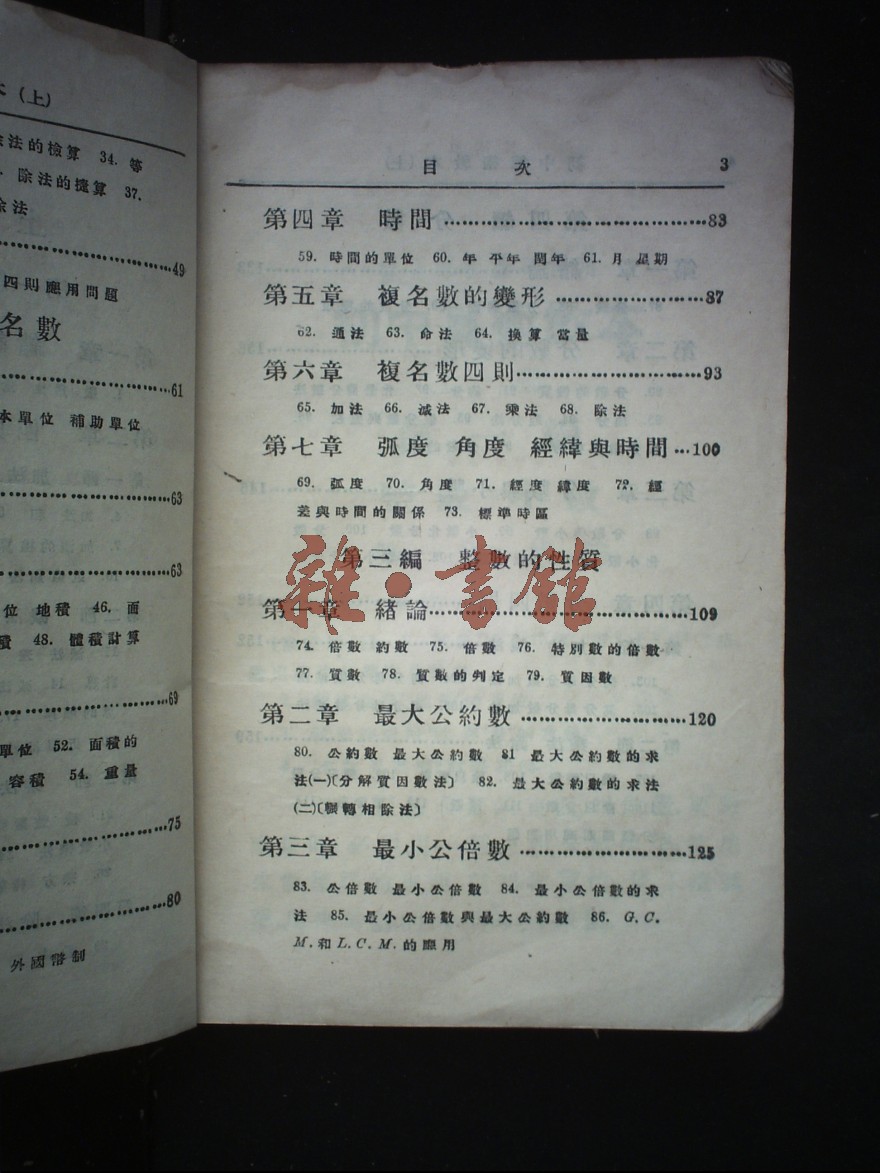 (上)
法的檢算 34. 等
除法的捷算 37.
除法
49
四則應用問題
名數
61
本單位 補助單位
63
63
位 地積 46. 面
積 48. 體積計算
69
單位 52. 面積的
容積 54. 重量
75
80
外國幣制
目 次 3
第四章 時間 …………………………………83
59. 時間的單位 60. 年 平年 閏年 61. 月 星期
第五章 複名數的變形 …………………87
62. 通法 63. 命法 64. 換算 當量
第六章 複名數四則………………………93
65. 加法 66. 減法 67. 乘法 68. 除法
第七章 弧度 角度 經緯與時間 …100
69. 弧度 70. 角度 71. 經度 緯度 72. 經
差與時間的關係 73. 標準時區
第三編 整數的性質
雜·書館
第一章 緒論…………………………………109
74. 倍數 約數 75. 倍數 76. 特別數的倍數
77. 質數 78. 質數的判定 79. 質因數
第二章 最大公約數 ……………………120
80. 公約數 最大公約數 81 最大公約數的求
法(一)〔分解質因數法〕 82. 最大公約數的求法
(二)〔輾轉相除法〕
第三章 最小公倍數 ……………………125
83. 公倍數 最小公倍數 84. 最小公倍數的求
法 85. 最小公倍數與最大公約數 86. G.C.
M.和L.C.M.的應用